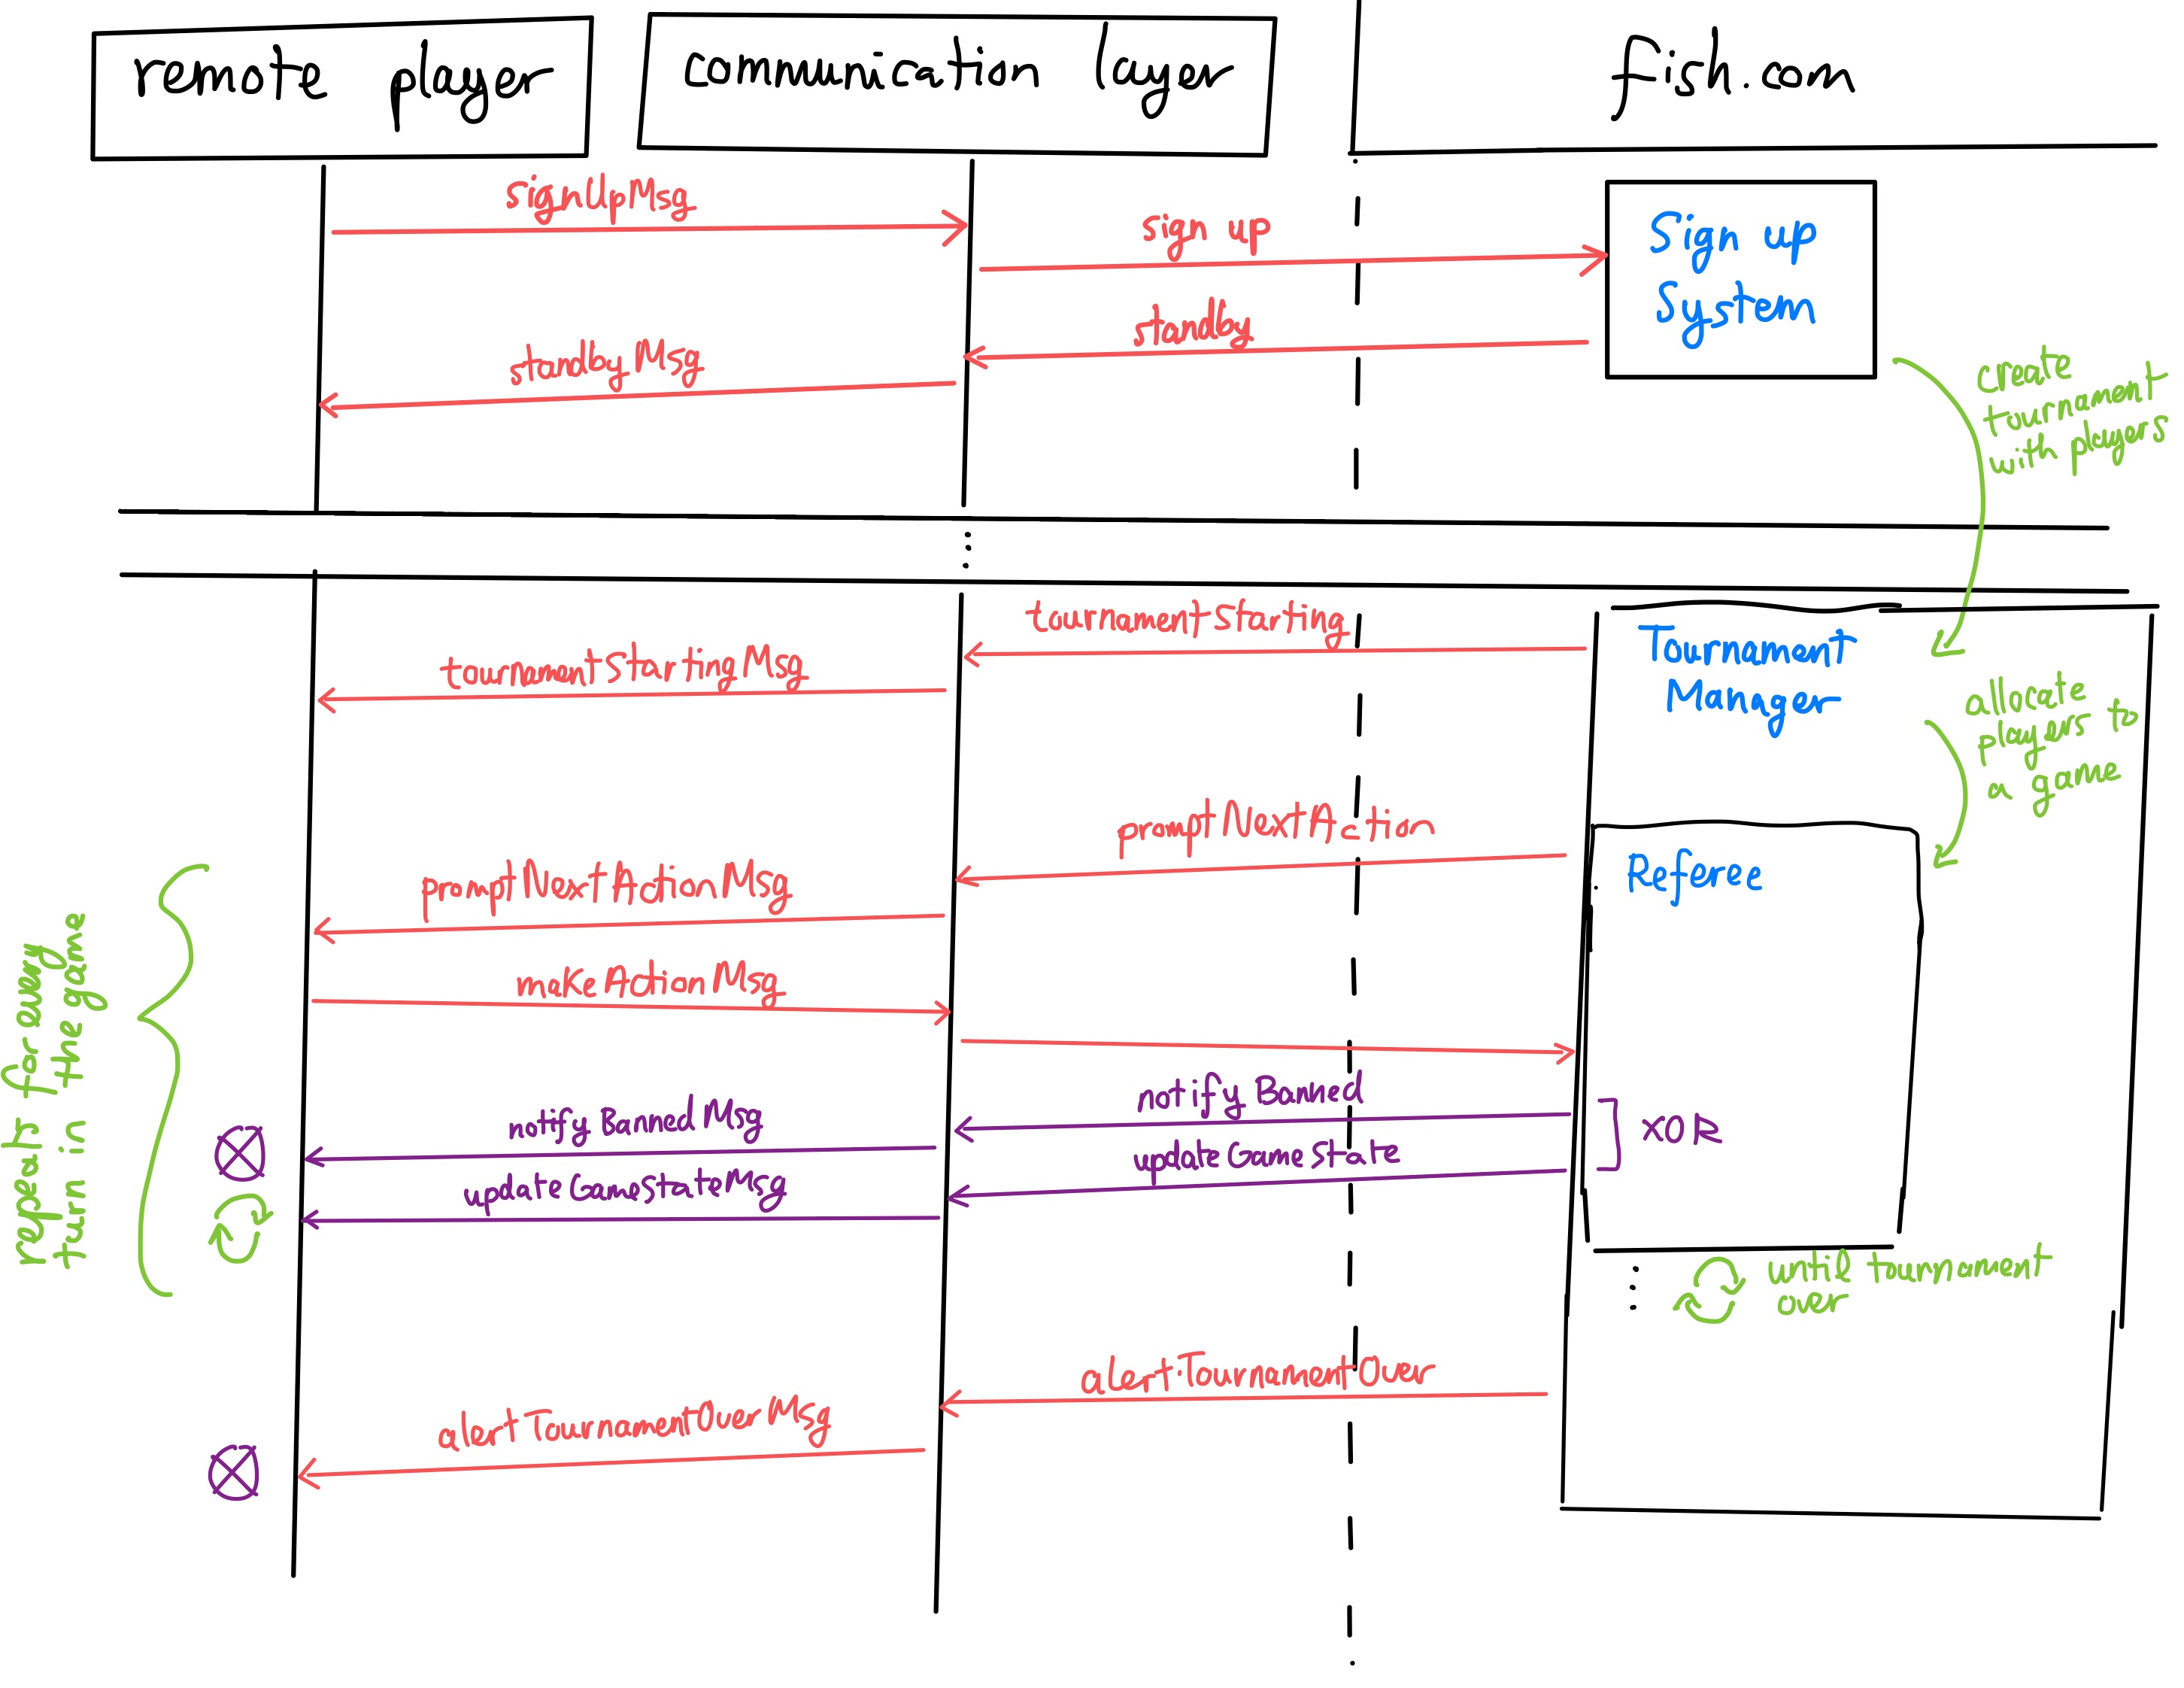 remote player
communication layer
fish.com
signUpMsg
sign up
Sign up
System
standby
standbyMsg
create
tournament
with players
tournamentStarting
tournamentStartingMsg
Tournament
Manager
allocate
players to
a game
promptNextAction
promptNextActionMsg
Referee
repeat for every
turn in the game
makeActionMsg
notifyBanned
notifyBannedMsg
XOR
updateGameState
updateGameStateMsg
until tournament
over
alertTournamentOver
alertTournamentOverMsg